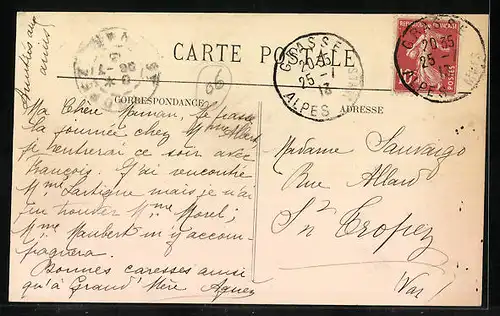 Amitiés aux
amies
CARTE POSTALE
CORRESPONDANCE
ADRESSE
GRASSE
20 35
25 - 1
13
ALPES MARIT
GRASSE
20 35
25 - 1
13
ALPES
POSTES
66
Ma Chère Maman, je passe
la journée chez Mme
je rentrerai ce soir avec
François. J'ai rencontré
Mme Lartigue mais je n'ai
pu trouver Mme Morel;
Mme Maubert m'y accom-
pagnera.
Bonnes caresses ainsi
qu'à Grand'Mère Agnès
Madame Sauvaigo
Rue Allard
St Tropez
Var